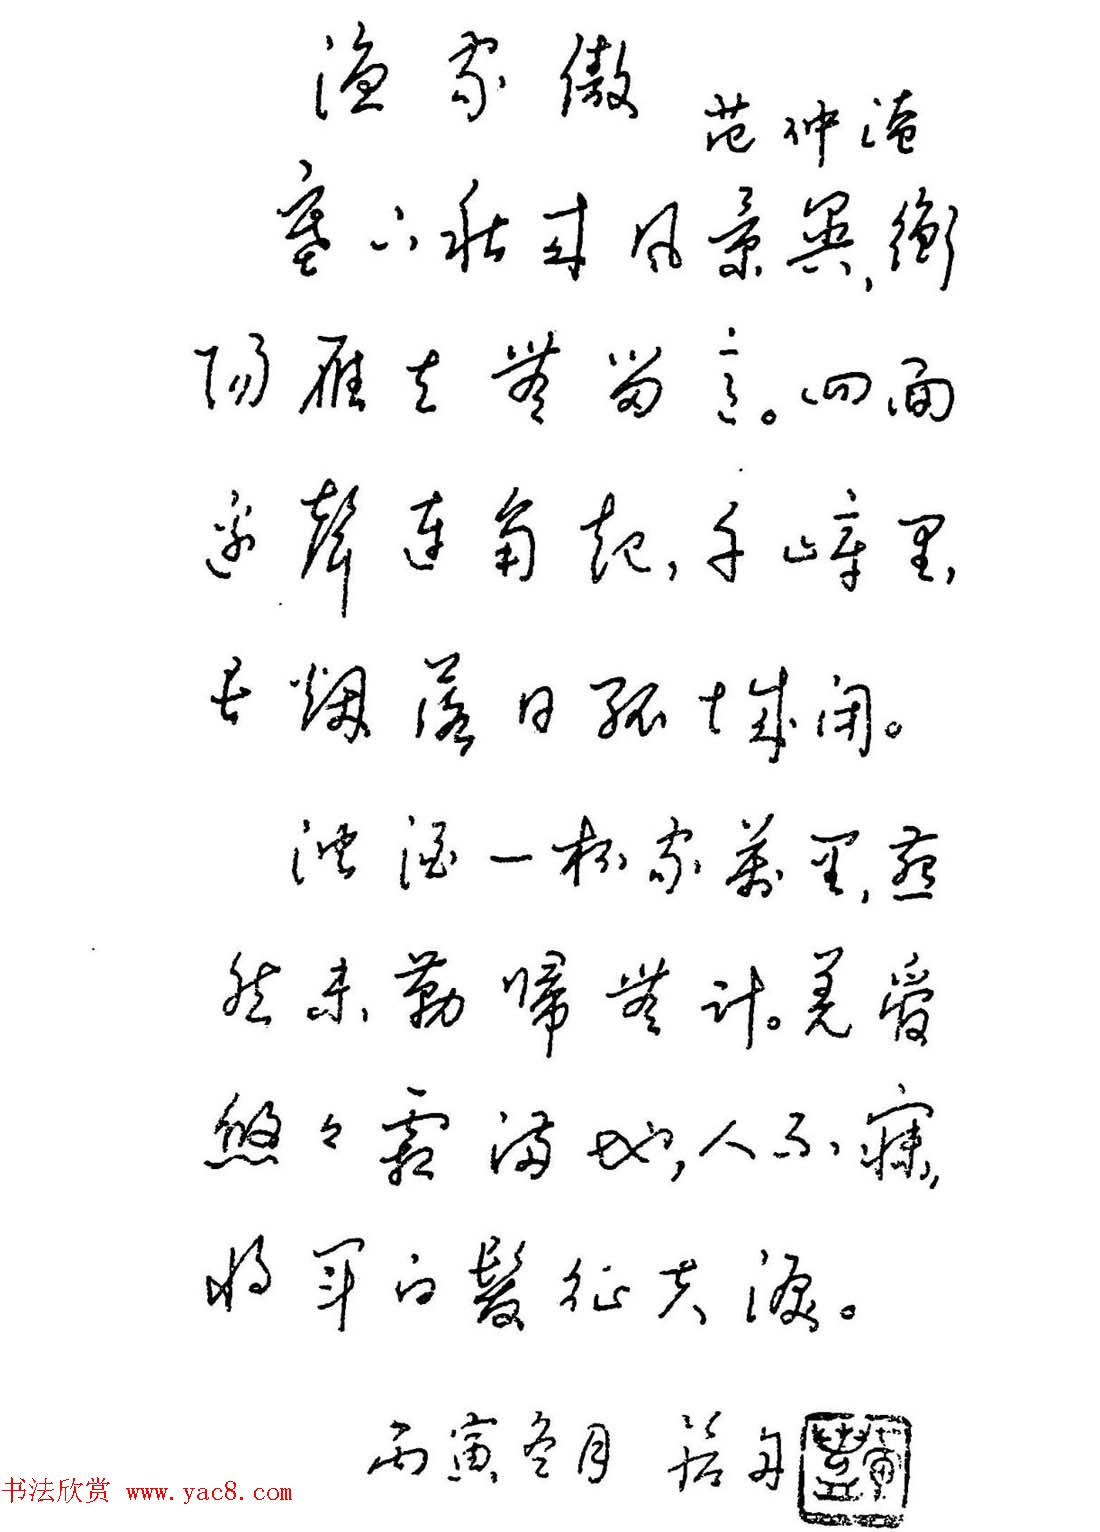 渔家傲
范仲淹
塞下秋来风景異,衡
陽雁去無留意。四面
邊聲連角起,千嶂里,
長烟落日孤城闭。
浊酒一杯家萬里,燕
然未勒歸無計。羌管
悠々霜满地,人不寐,
将军白髮征夫淚。
丙寅冬月 若舟
书法欣赏 www.yac8.com